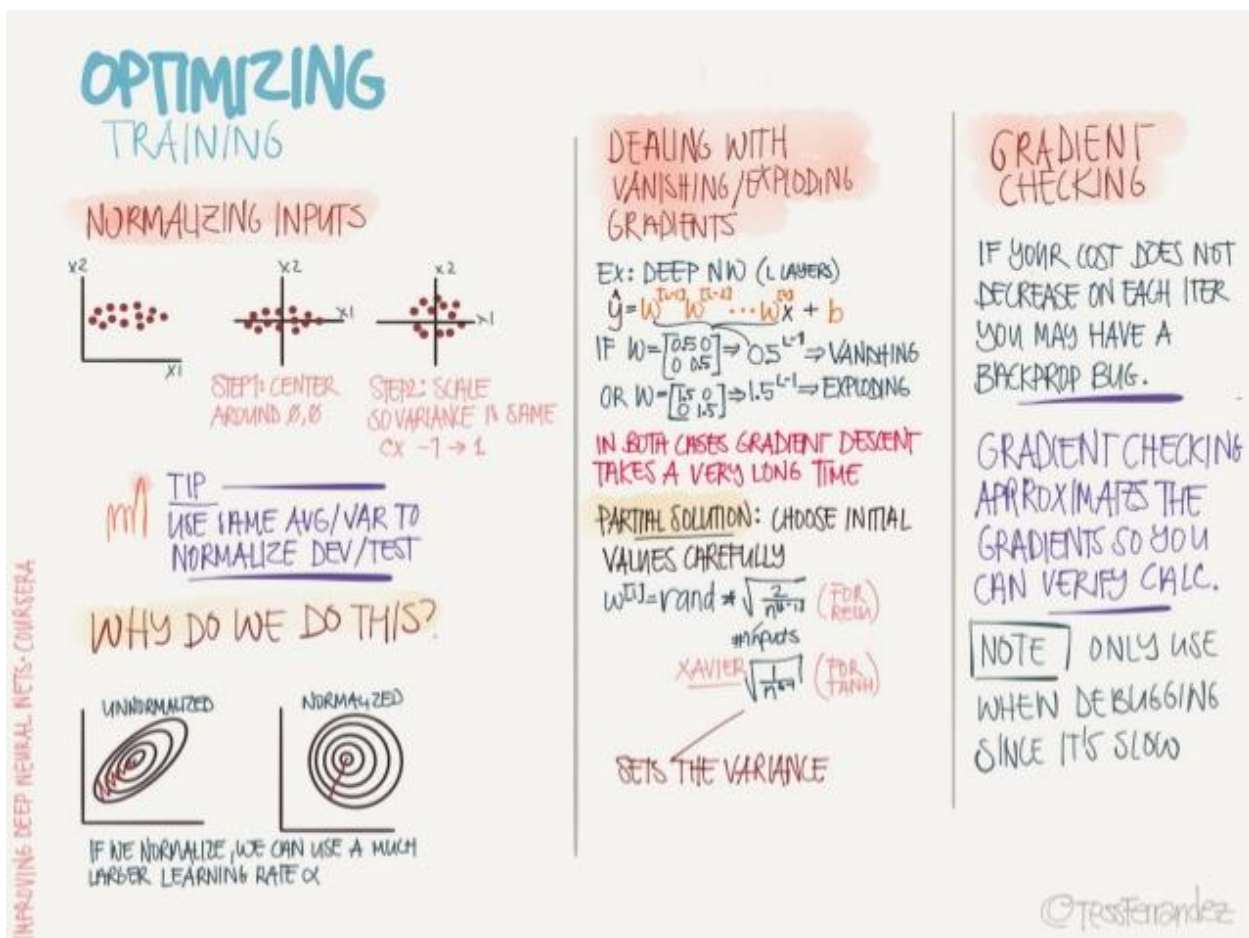 OPTIMIZING
TRAINING
NORMALIZING INPUTS
x2
x1
x2
x1
x2
x1
STEP1: CENTER
AROUND 0,0
STEP2: SCALE
SO VARIANCE IS SAME
EX -1 → 1
TIP
USE SAME AVG/VAR TO
NORMALIZE DEV/TEST
WHY DO WE DO THIS?
UNNORMALIZED
NORMALIZED
IF WE NORMALIZE, WE CAN USE A MUCH
LARGER LEARNING RATE α
IMPROVING DEEP NEURAL NETS - COURSERA
DEALING WITH
VANISHING/EXPLODING
GRADIENTS
EX: DEEP NW (L LAYERS)
ŷ = W^[L-1] W^[L-2] ... W x + b
IF W = [0.5 0 0 0.5] ⇒ 0.5^L-1 ⇒ VANISHING
OR W = [1.5 0 0 1.5] ⇒ 1.5^L-1 ⇒ EXPLODING
IN BOTH CASES GRADIENT DESCENT
TAKES A VERY LONG TIME
PARTIAL SOLUTION: CHOOSE INITIAL
VALUES CAREFULLY
W^[l] = rand * √2/n^[l-1] (FOR RELU)
#inputs
XAVIER √1/n^[l-1] (FOR TANH)
SETS THE VARIANCE
GRADIENT
CHECKING
IF YOUR COST DOES NOT
DECREASE ON EACH ITER
YOU MAY HAVE A
BACKPROP BUG.
GRADIENT CHECKING
APPROXIMATES THE
GRADIENTS SO YOU
CAN VERIFY CALC.
NOTE ONLY USE
WHEN DEBUGGING
SINCE IT'S SLOW
@TessFerrandez